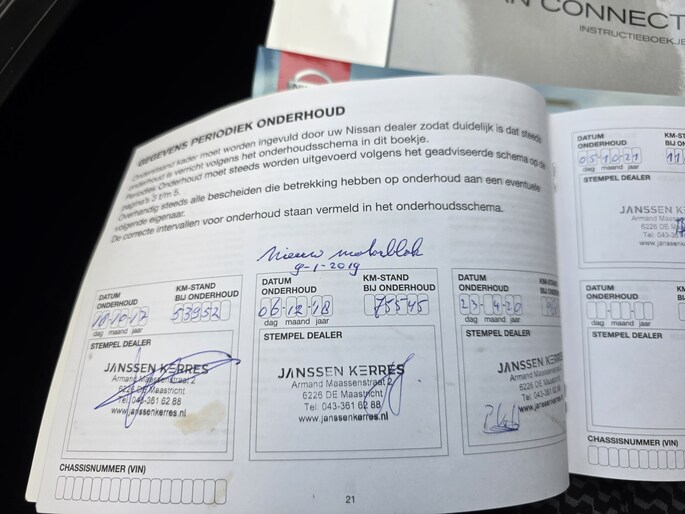 AN CONNECT
INSTRUCTIEBOEKJE
GEGEVENS PERIODIEK ONDERHOUD
Onderstaand kader moet worden ingevuld door uw Nissan dealer zodat duidelijk is dat steeds
onderhoud is verricht volgens het onderhoudsschema in dit boekje.
Periodiek Onderhoud moet steeds worden uitgevoerd volgens het geadviseerde schema op de
pagina's 3 t/m 5.
Overhandig steeds alle bescheiden die betrekking hebben op onderhoud aan een eventuele
volgende eigenaar.
De correcte intervallen voor onderhoud staan vermeld in het onderhoudsschema.
Nieuw motorblok
9-1-2019
DATUM ONDERHOUD
KM-STAND BIJ ONDERHOUD
18-10-17 53952
dag maand jaar
STEMPEL DEALER
JANSSEN KERRES
Armand Maassenstraat 2
6226 DE Maastricht
Tel: 043-361 62 88
www.janssenkerres.nl
CHASSISNUMMER (VIN)
DATUM ONDERHOUD
KM-STAND BIJ ONDERHOUD
06-12-18 75545
dag maand jaar
STEMPEL DEALER
JANSSEN KERRES
Armand Maassenstraat 2
6226 DE Maastricht
Tel: 043-361 62 88
www.janssenkerres.nl
DATUM ONDERHOUD
KM-STAND BIJ ONDERHOUD
23-4-20
dag maand jaar
STEMPEL DEALER
JANSSEN KERRES
Armand Maassenstraat
6226 DE Maastricht
Tel: 043-361 62
www.janssenkerres
21
DATUM ONDERHOUD
KM-STAND BIJ ONDERH
05-10-21 11
dag maand jaar
STEMPEL DEALER
JANSSEN
Armand Maas
6226 DE M
Tel: 043-3
www.janssen
DATUM ONDERHOUD
KM-STAN BIJ ONDE
dag maand jaar
STEMPEL DEALER
CHASSISNUMMER (VIN)